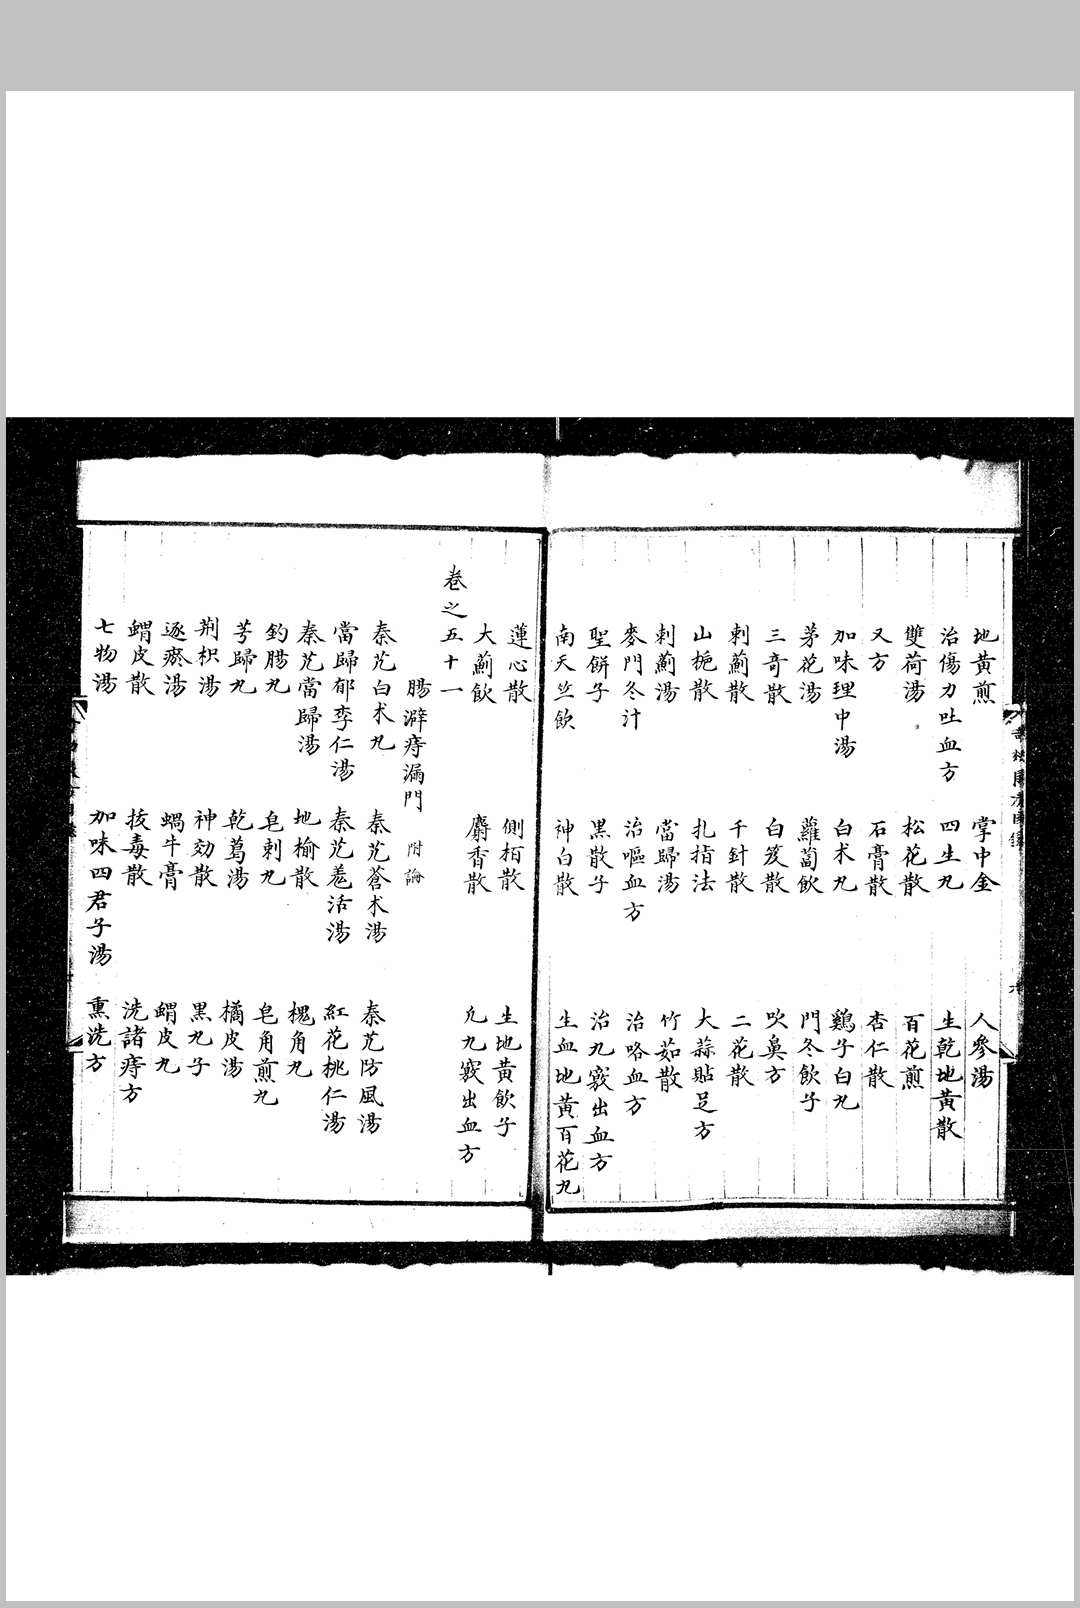 地黃煎 掌中金 人參湯
治傷力吐血方 四生丸 生乾地黃散
雙荷湯 松花散 百花煎
又方 石膏散 杏仁散
加味理中湯 白术丸 鷄子白丸
茅花湯 蘿蔔飲 門冬飲子
三奇散 白芨散 吹鼻方
刺薊散 千針散 二花散
山梔散 扎指法 大蒜貼足方
刺薊湯 當歸湯 竹茹散
麥門冬汁 治嘔血方 治咯血方
聖餅子 黑散子 治九竅出血方
南天竺飲 神白散 生血地黃百花丸
蓮心散 側栢散 生地黃飲子
大薊飲 麝香散 九竅出血方
卷之五十一
腸澼痔漏門 附論
秦艽白术丸 秦艽蒼术湯 秦艽防風湯
當歸郁李仁湯 秦艽羌活湯 紅花桃仁湯
秦艽當歸湯 地榆散 槐角丸
釣腸丸 皂刺丸 皂角煎丸
芎歸丸 乾葛湯 橘皮湯
荆枳湯 神効散 黑丸子
逐瘀湯 蝸牛膏 蝟皮丸
蝟皮散 拔毒散 洗諸痔方
七物湯 加味四君子湯 熏洗方